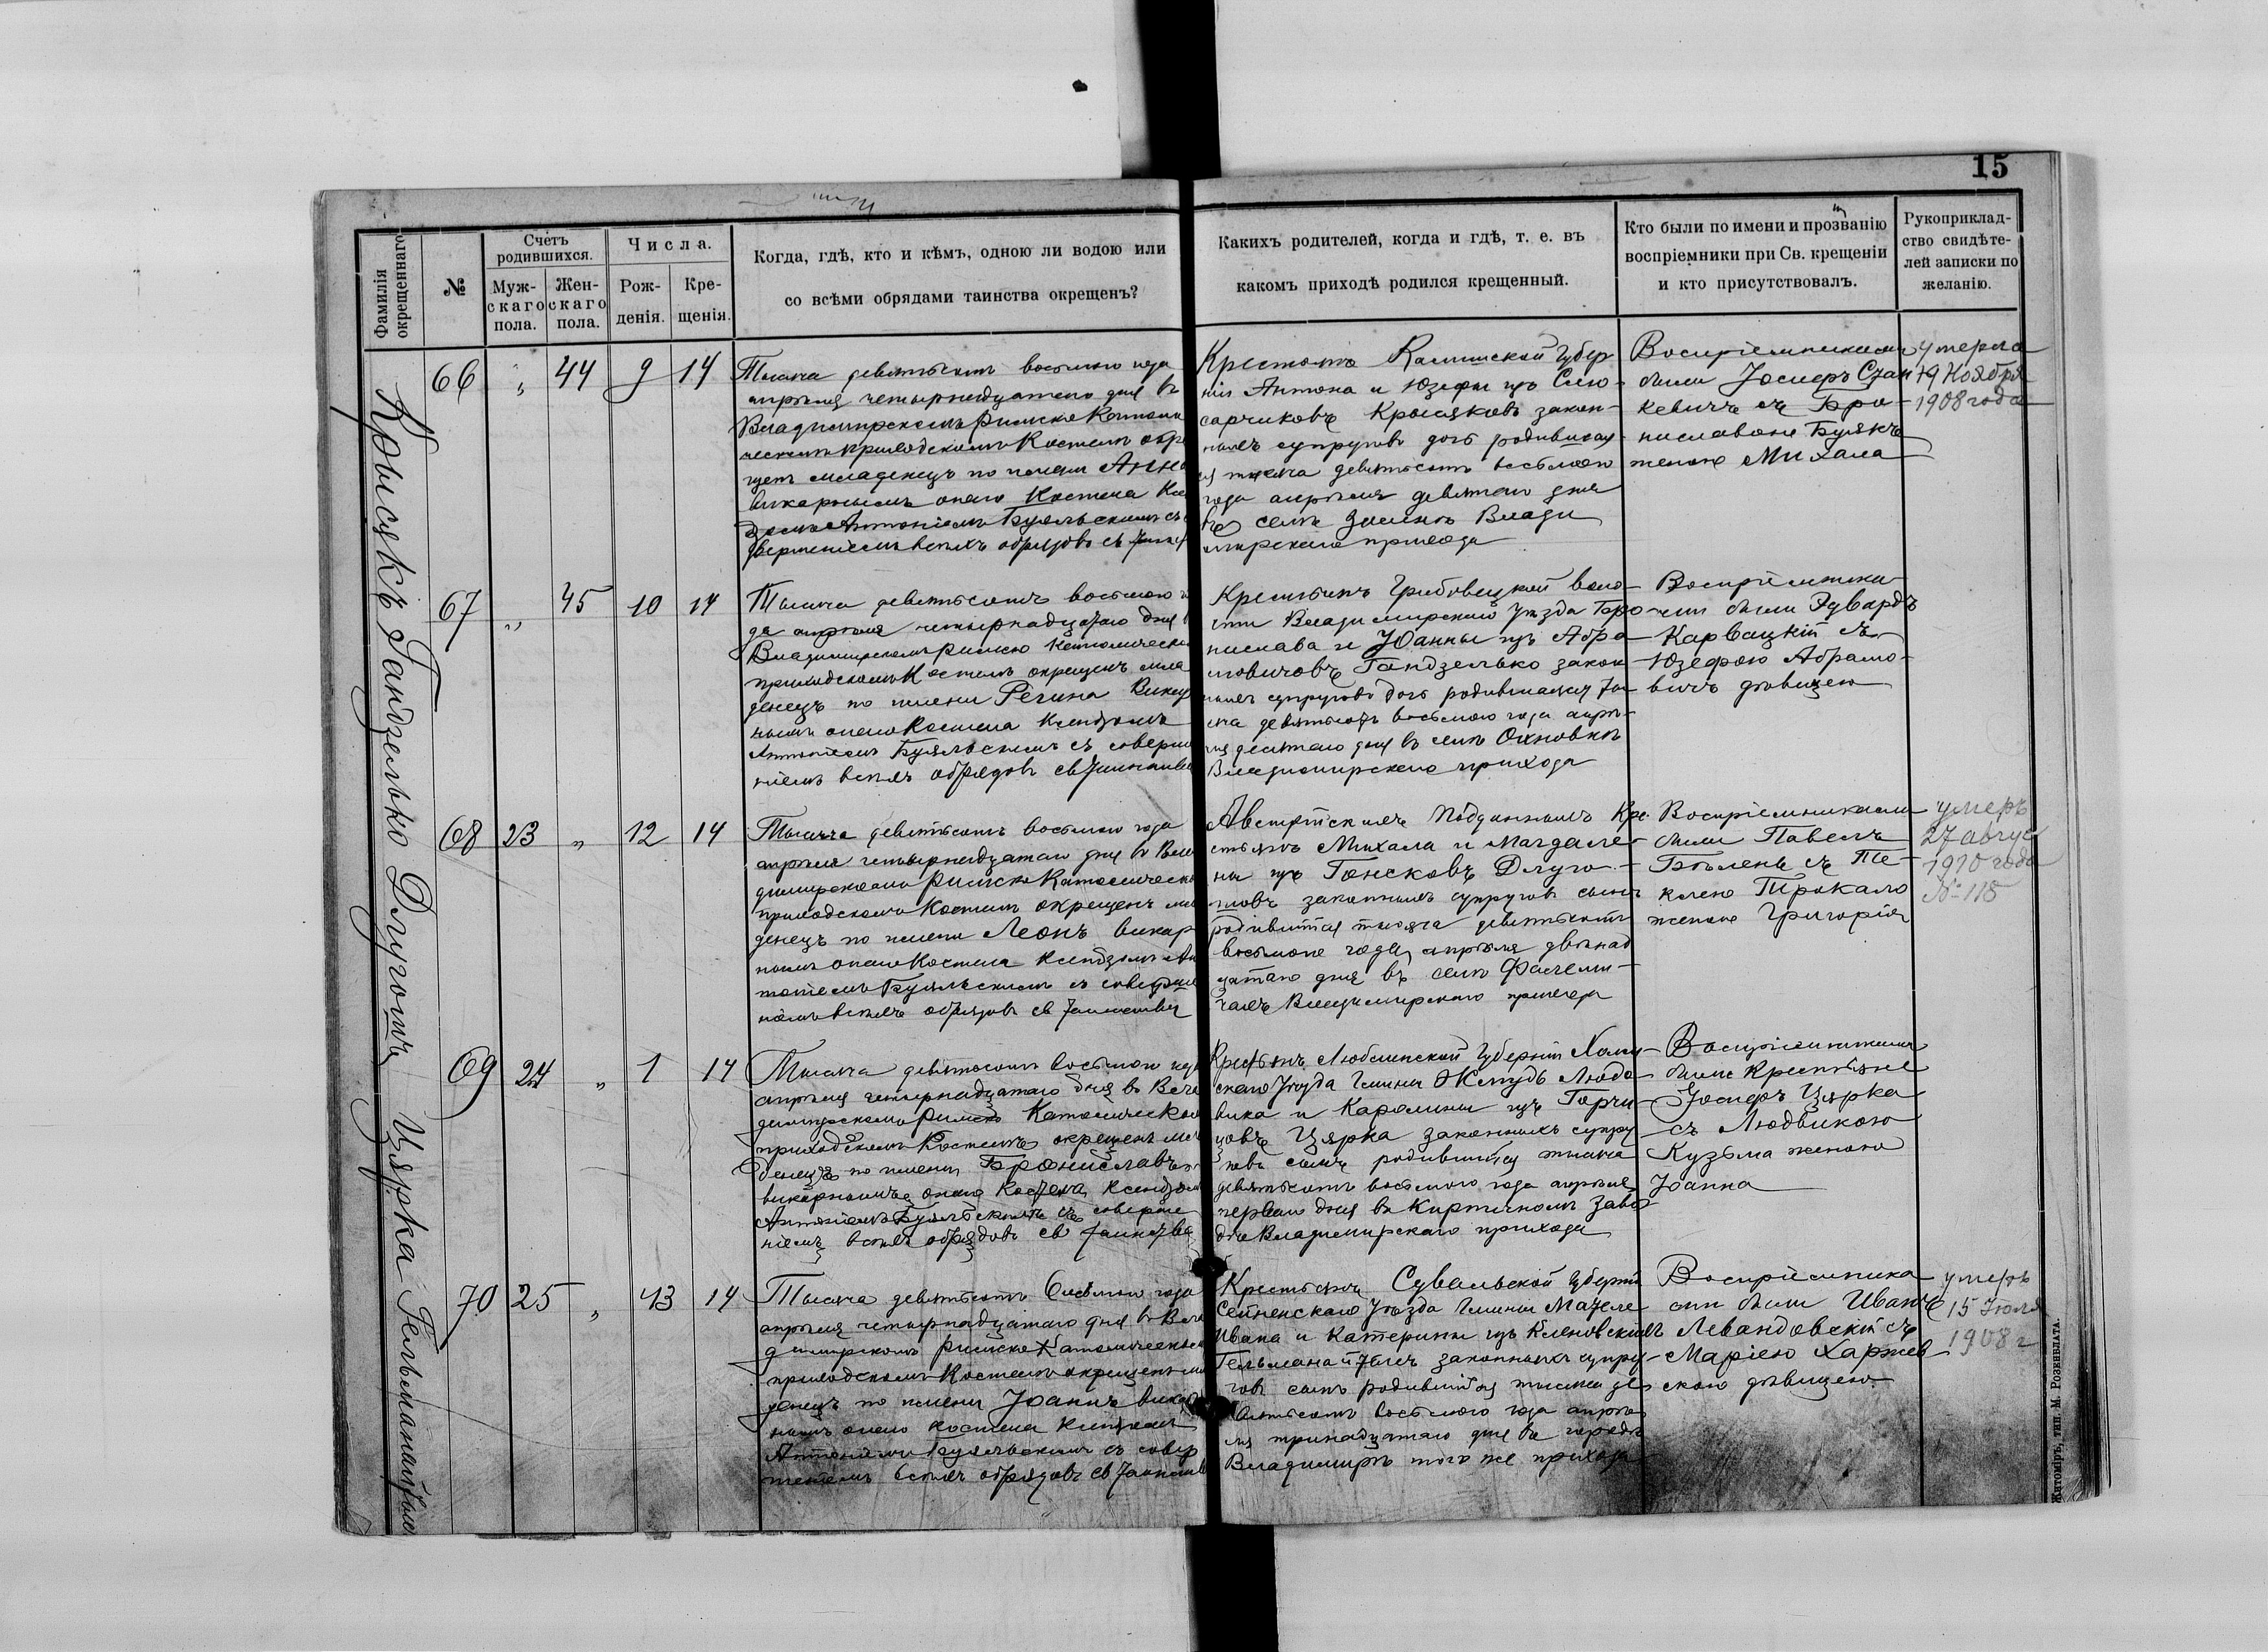 15
Фамилія окрещеннаго
№
Счетъ родившихся.
Мужскаго пола.
Женскаго пола.
Числа.
Рожденія.
Крещенія.
Когда, гдѣ, кто и кѣмъ, одною ли водою или
со всѣми обрядами таинства окрещенъ?
Какихъ родителей, когда и гдѣ, т. е. въ
какомъ приходѣ родился крещенный.
Кто были по имени и прозванію
воспріемники при Св. крещеніи
и кто присутствовалъ.
Рукоприклад-
ство свидѣте-
лей записки по
желанію.
Крысякъ
66 „ 44 9 14
Тысяча девятьсотъ восьмого года
апрѣля четырнадцатаго дня въ
Владимирскомъ Римско Католи
ческомъ приходскомъ Костелѣ окре
щенъ младенецъ по имени Анна
викарнымъ онаго Костела Ксе
дзомъ Антоніемъ Буяльскимъ съ со
вершеніемъ всѣхъ обрядовъ св
Крестьянъ Губер
ніи Антона и Юзефы изъ Слю-
сарчиковъ Крысяковъ закон-
ныхъ супруговъ дочь родившая
ся тысяча девятьсотъ восьмого
года апрѣля девятаго дня
въ селѣ Влади
мирскаго прихода
Воспріемниками
были Іосифъ Стан
кевичъ съ Бро-
ниславою Буякъ
женою Михала
умерла
19 Ноября
1908 года
Гандзелько
67 „ 45 10 14
Тысяча девятьсотъ восьмого го
да апрѣля четырнадцатаго дня въ
Владимирскомъ Римско Католическо
приходскомъ Костелѣ окрещенъ мла
денецъ по имени Регина Викар
нымъ онаго Костела Ксендзомъ
Антоніемъ Буяльскимъ съ соверше
ніемъ всѣхъ обрядовъ св Таинства
Крестьянъ Грибовицкой воло-
сти Владимирскаго уѣзда Бро-
нислава и Іоанны изъ Абра-
мовичовъ Гандзелько закон-
ныхъ супруговъ дочь родившаяся ты
сяча девятьсотъ восьмого года апрѣ-
ля десятаго дня въ селѣ Охновкѣ
Владимирскаго прихода
Воспріемника-
ми были Эдвардъ
Карвацкій съ
Юзефою Абрамо-
вичъ дѣвицею
Длугошъ
68 23 „ 12 14
Тысяча девятьсотъ восьмого года
апрѣля четырнадцатаго дня въ Вла
димирскомъ Римско Католическо
приходскомъ Костелѣ окрещенъ мла
денецъ по имени Леонъ викар
нымъ онаго Костела Ксендзомъ Ан
тоніемъ Буяльскимъ съ соверше
ніемъ всѣхъ обрядовъ св Таинства
Австрійскихъ Подданныхъ Кре-
стьянъ Михала и Магдале-
ны изъ Гонсковъ Длуго-
шовъ законныхъ супруговъ сынъ
родившійся тысяча девятьсотъ
восьмого года апрѣля двѣнад
цатаго дня въ селѣ
Владимирскаго прихода
Воспріемниками
были Павелъ
Бѣлень съ Те-
клею Трокало
женою Григорія
умеръ
27 авгус
1910 года
№ 118
Цярка
69 24 „ 1 14
Тысяча девятьсотъ восьмого года
апрѣля четырнадцатаго дня въ Вла
димирскомъ Римско Католическом
приходскомъ Костелѣ окрещенъ мла
денецъ по имени Брониславъ
викарнымъ онаго Костела Ксендзом
Антоніемъ Буяльскимъ съ соверше
ніемъ всѣхъ обрядовъ св Таинства
Крестьянъ Люблинской Губерніи Холм-
скаго Уѣзда Гмины Жмудь Людо-
вика и Каролины изъ Горчи-
цовъ Цярка законныхъ супру-
говъ сынъ родившійся тысяча
девятьсотъ восьмого года апрѣля
перваго дня въ Кирпичномъ заво
дѣ Владимирскаго прихода
Воспріемниками
были Крестьяне
Іосифъ Цярка
съ Людвикою
Кузьма женою
Іоанна
Гельманайтысъ
70 25 „ 13 14
Тысяча девятьсотъ восьмого года
апрѣля четырнадцатаго дня въ Вла
димирскомъ Римско Католическомъ
приходскомъ Костелѣ окрещенъ мла
денецъ по имени Іоаннъ викар
нымъ онаго Костела Ксендзомъ
Антоніемъ Буяльскимъ съ совер
шеніемъ всѣхъ обрядовъ св Таинства
Крестьянъ Сувальской Губерніи
Сейненскаго Уѣзда Гмины
Ивана и Катерины изъ Кленовскихъ
законныхъ супру-
говъ сынъ родившійся тысяча де-
вятьсотъ восьмого года апрѣ
ля тринадцатаго дня въ городѣ
Владимирѣ того же прихода
Воспріемника-
ми были Иванъ
Левандовскій съ
Маріею Харжев
скою дѣвицею
умеръ
15 Іюля
1908 г
Житоміръ, тип. М. Розенблата.